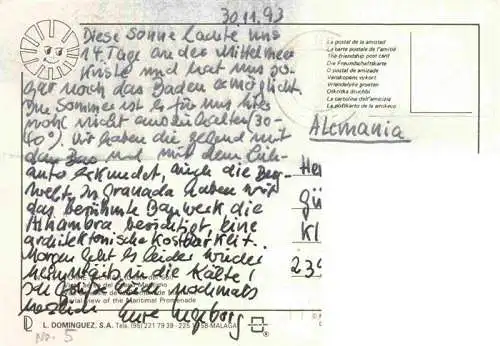 30.11.93
Diese Sonne lachte uns
14 Tage an der Mittelmeer
küste und hat uns so-
gar noch das Baden ermöglicht.
Im Sommer ist es für uns hier
wohl nicht auszuhalten (30-
40°). Wir haben die Gegend mit
dem Bus und mit dem Leih-
auto erkundet, auch die Berg-
welt. In Granada haben wir
das berühmte Bauwerk die
Alhambra besichtigt, eine
architektonische Kostbarkeit.
Morgen geht es leider wieder
heimwärts in die Kälte!
nochmals
herzlich Eure Ingeborg
La postal de la amistad
La carte postale de l'amitié
The friendship post card
Die Freundschaftskarte
O postal de amizade
Venskopens vykort
Vriendelijke groeten
La cartolina dell'amicizia
Alemania
He
Gü
Kl
239
Aerial view of the Maritimal Promenade
L. DOMINGUEZ, S.A. Tels. (95) 221 79 39 - 225 58-MALAGA
No. 5